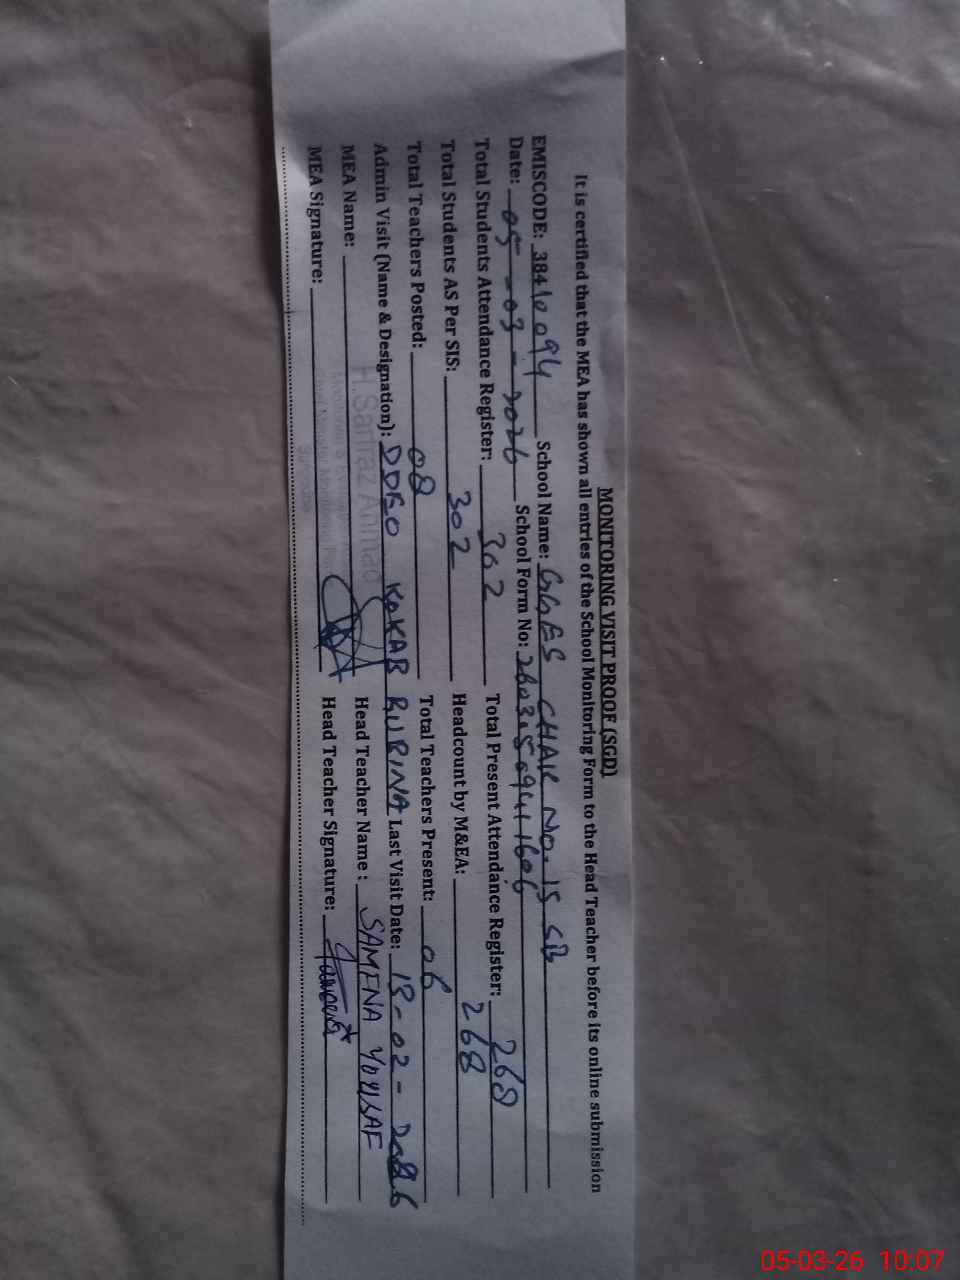 MONITORING VISIT PROOF (SGD)
It is certified that the MEA has shown all entries of the School Monitoring Form to the Head Teacher before its online submission
EMISCODE: 38410094 School Name: GGES CHAK NO. 15 SB
Date: 05-03-2026 School Form No:
Total Students Attendance Register: 302 Total Present Attendance Register: 268
Total Students AS Per SIS: 302 Headcount by M&EA: 268
Total Teachers Posted: 08 Total Teachers Present: 06
Admin Visit (Name & Designation): DDEO KOKAB RUBINA Last Visit Date: 13-02-2026
MEA Name: H.Sarfraz Ahmad Head Teacher Name : SAMENA YOUSAF
MEA Signature: Head Teacher Signature:
05-03-26 10:07